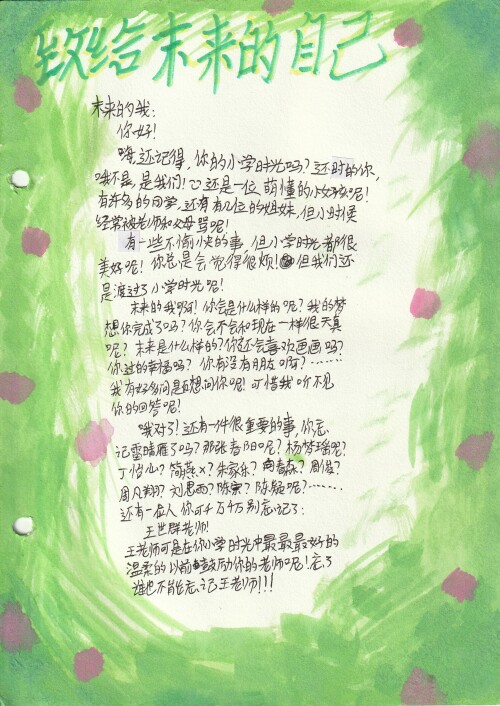 致给未来的自己
未来的我:
你好!
嗨,还记得,你的小学时光吗?还时的你,
哦不是,是我们!还是一位萌懂的小女孩呢!
有许多的同学,还有有几位的姐妹,但小时侯
经常被老师和父母骂呢!
有一些不愉快的事,但小学时光都很
美好呢!你总是会觉得很烦!但我们还
是渡过了小学时光呢!
未来的我啊!你会是什么样的呢?我的梦
想你完成了吗?你会不会和现在一样很天真
呢?未来是什么样的?你还会喜欢画画吗?
你过的幸福吗?你有没有朋友呀?……
我有好多问题想问你呢!可惜我听不见
你的回答呢!
哦对了!还有一件很重要的事,你忘
记雷晴雁了吗?那张春阳呢?杨梦瑶呢?
丁怡仙?简燕×?朱家乐?向春森?周俊?
周凡翔?刘思雨?陈寅?陈疑呢?……
还有一位人你可千万千万别忘记了:
王世群老师!
王老师可是在你小学时光中最最最好的
温柔的以前鼓励你的老师呢!忘了
谁也不能忘记王老师!!!